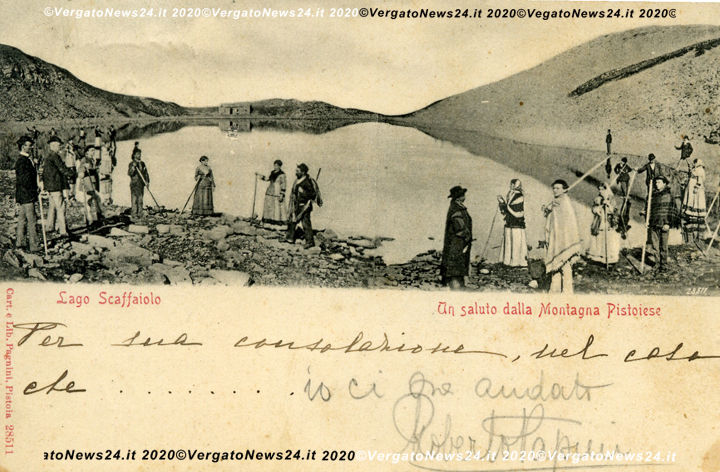 ©VergatoNews24.it 2020©VergatoNews24.it 2020©VergatoNews24.it 2020©VegatoNews24.it 2020©
28511
Lago Scaffaiolo
Un saluto dalla Montagna Pistoiese
Cart. e Lib. Pagnini, Pistoia 28511
Per sua consolazione, nel caso
che . . . . . . . . . io ci
andato
Roberto
atoNews24.it 2020©VergatoNews24.it 2020©VergatoNews24.it 2020©VergatoNews24.it 2020©